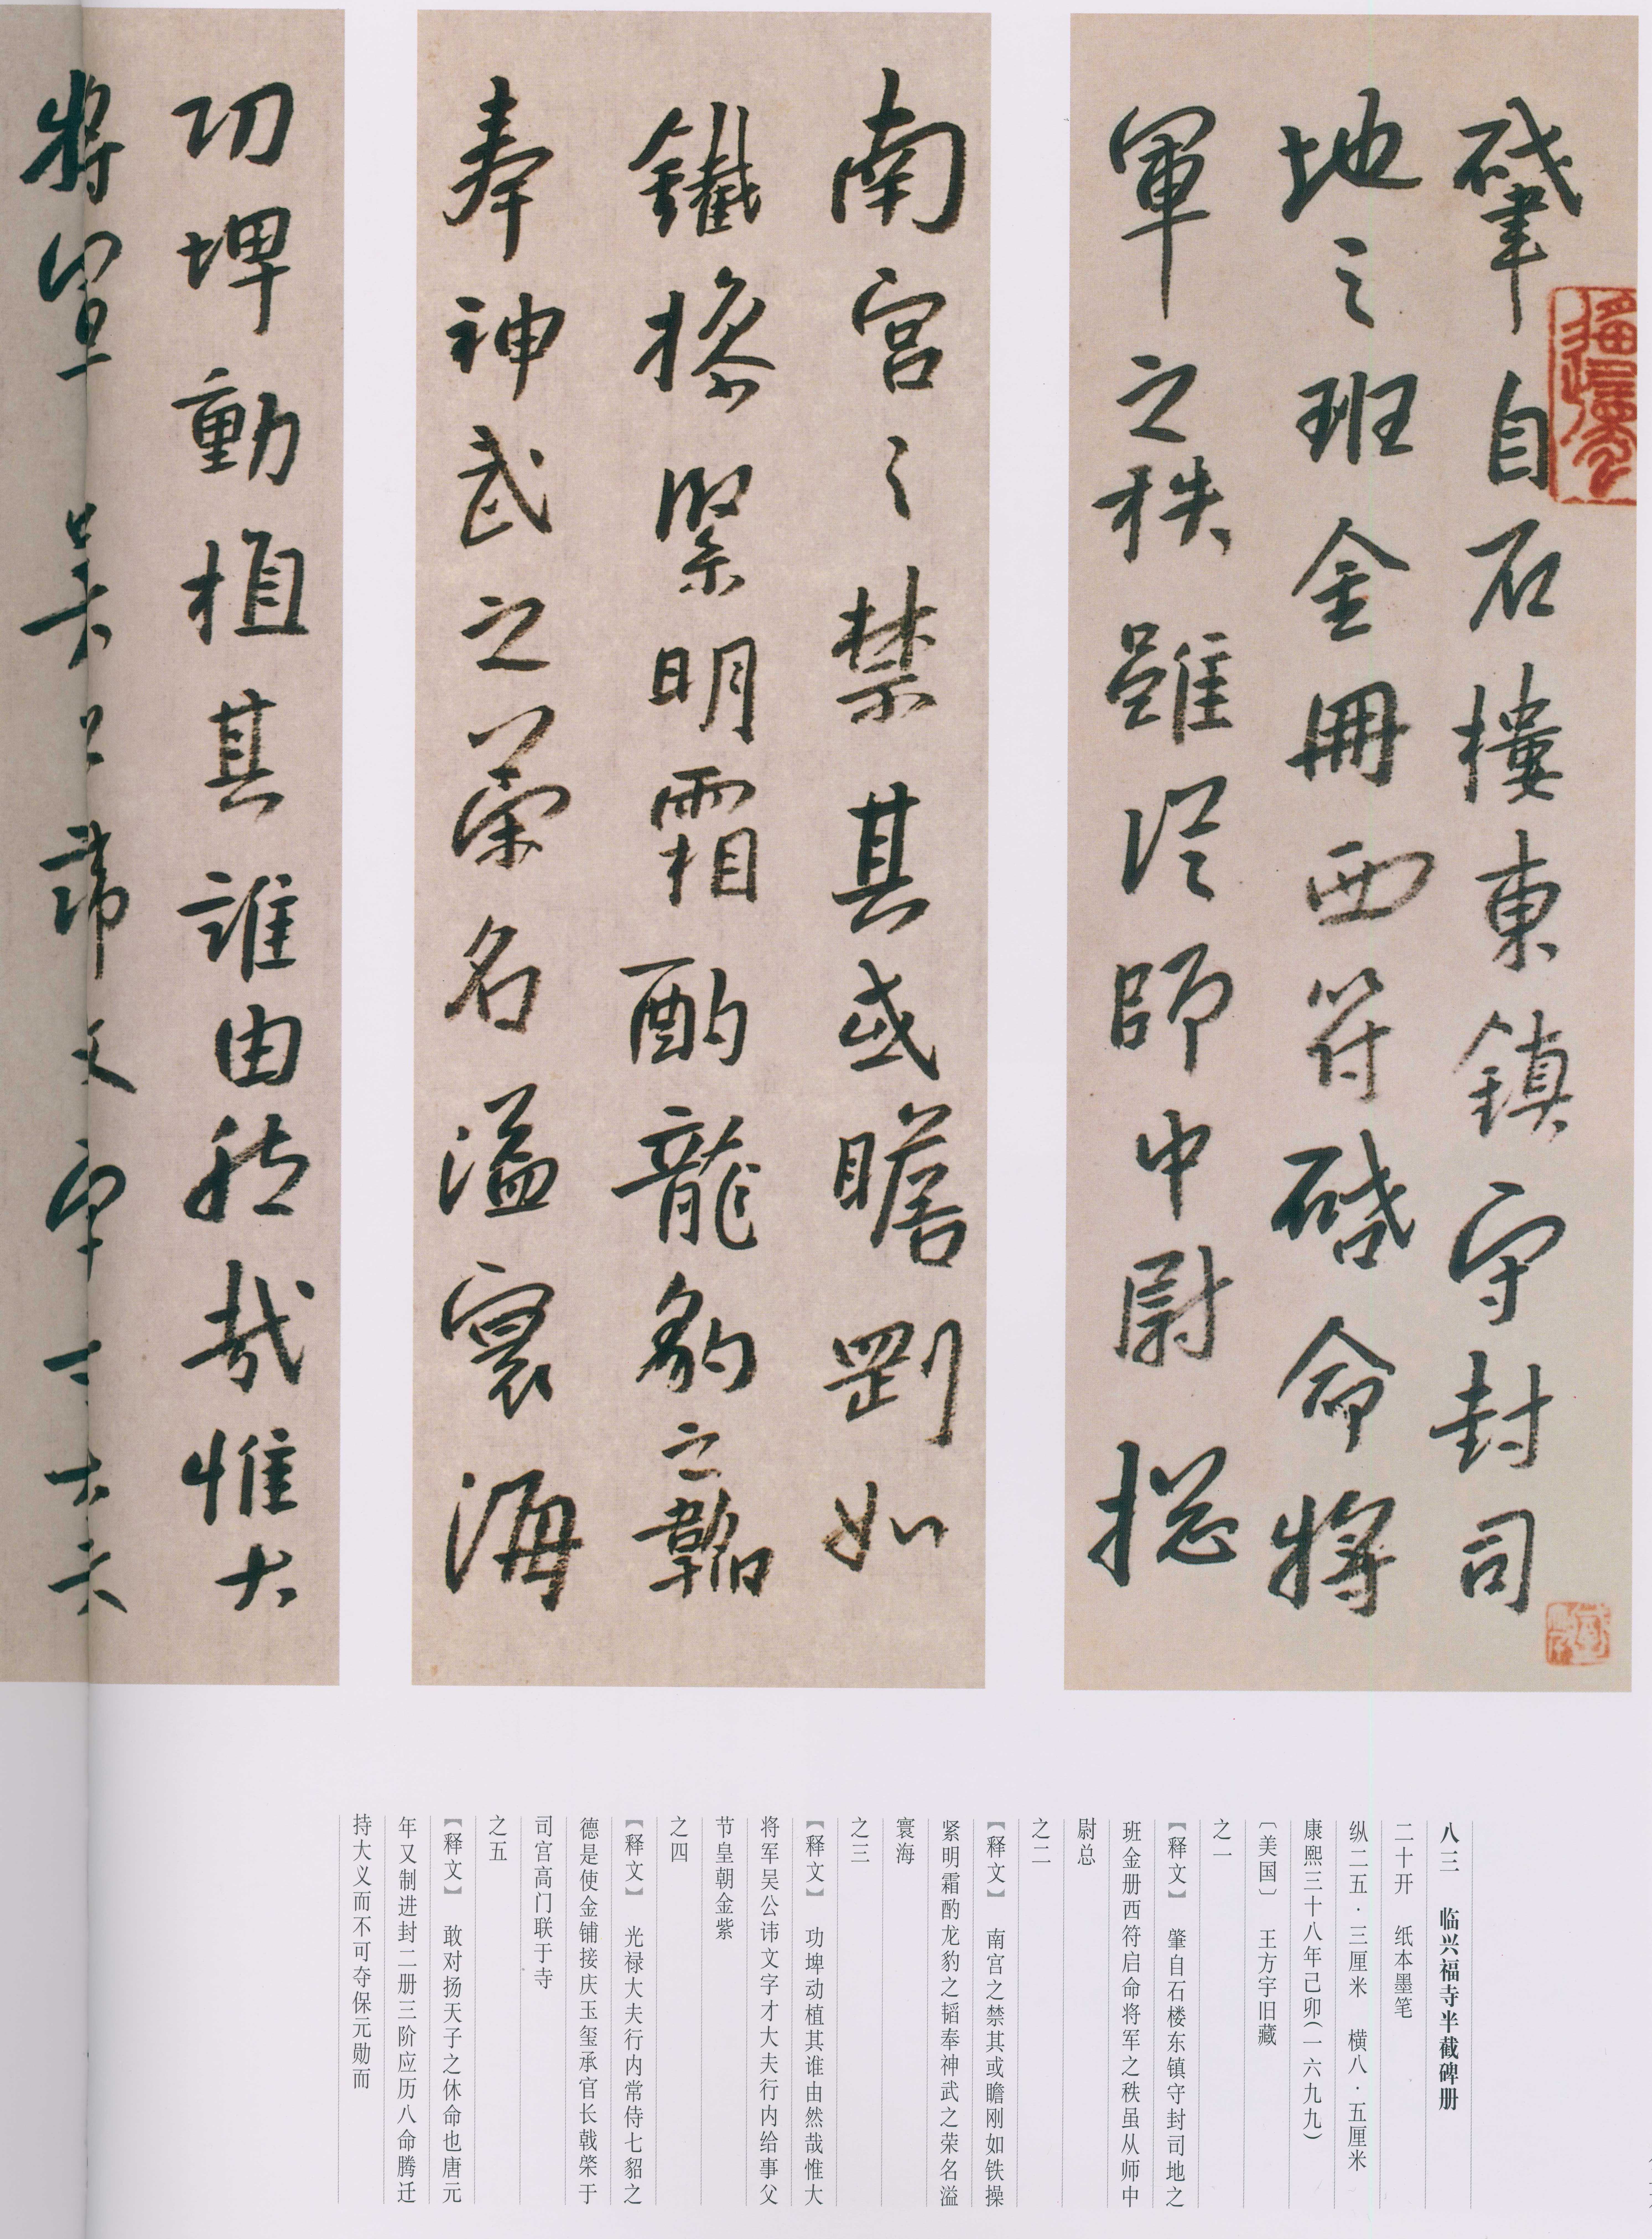 肇自石樓東鎮守封司
地之班金冊西符啓命將
軍之秩雖從師中尉捴
南宮之禁其或瞻剛如
鐵操緊明霜酌龍豹之韜
奉神武之榮名溢寰海
功埤動植其誰由然哉惟大
將軍吴公諱文
八三　临兴福寺半截碑册
二十开　纸本墨笔
纵二五·三厘米　横八·五厘米
康熙三十八年己卯(一六九九)
〔美国〕　王方宇旧藏
之一
【释文】　肇自石楼东镇守封司地之
班金册西符启命将军之秩虽从师中
尉总
之二
【释文】　南宫之禁其或瞻刚如铁操
紧明霜酌龙豹之韬奉神武之荣名溢
寰海
之三
【释文】　功埤动植其谁由然哉惟大
将军吴公讳文字才大夫行内给事父
节皇朝金紫
之四
【释文】　光禄大夫行内常侍七貂之
德是使金铺接庆玉玺承官长戟棨于
司宫高门联于寺
之五
【释文】　敢对扬天子之休命也唐元
年又制进封二册三阶应历八命腾迁
持大义而不可夺保元勋而